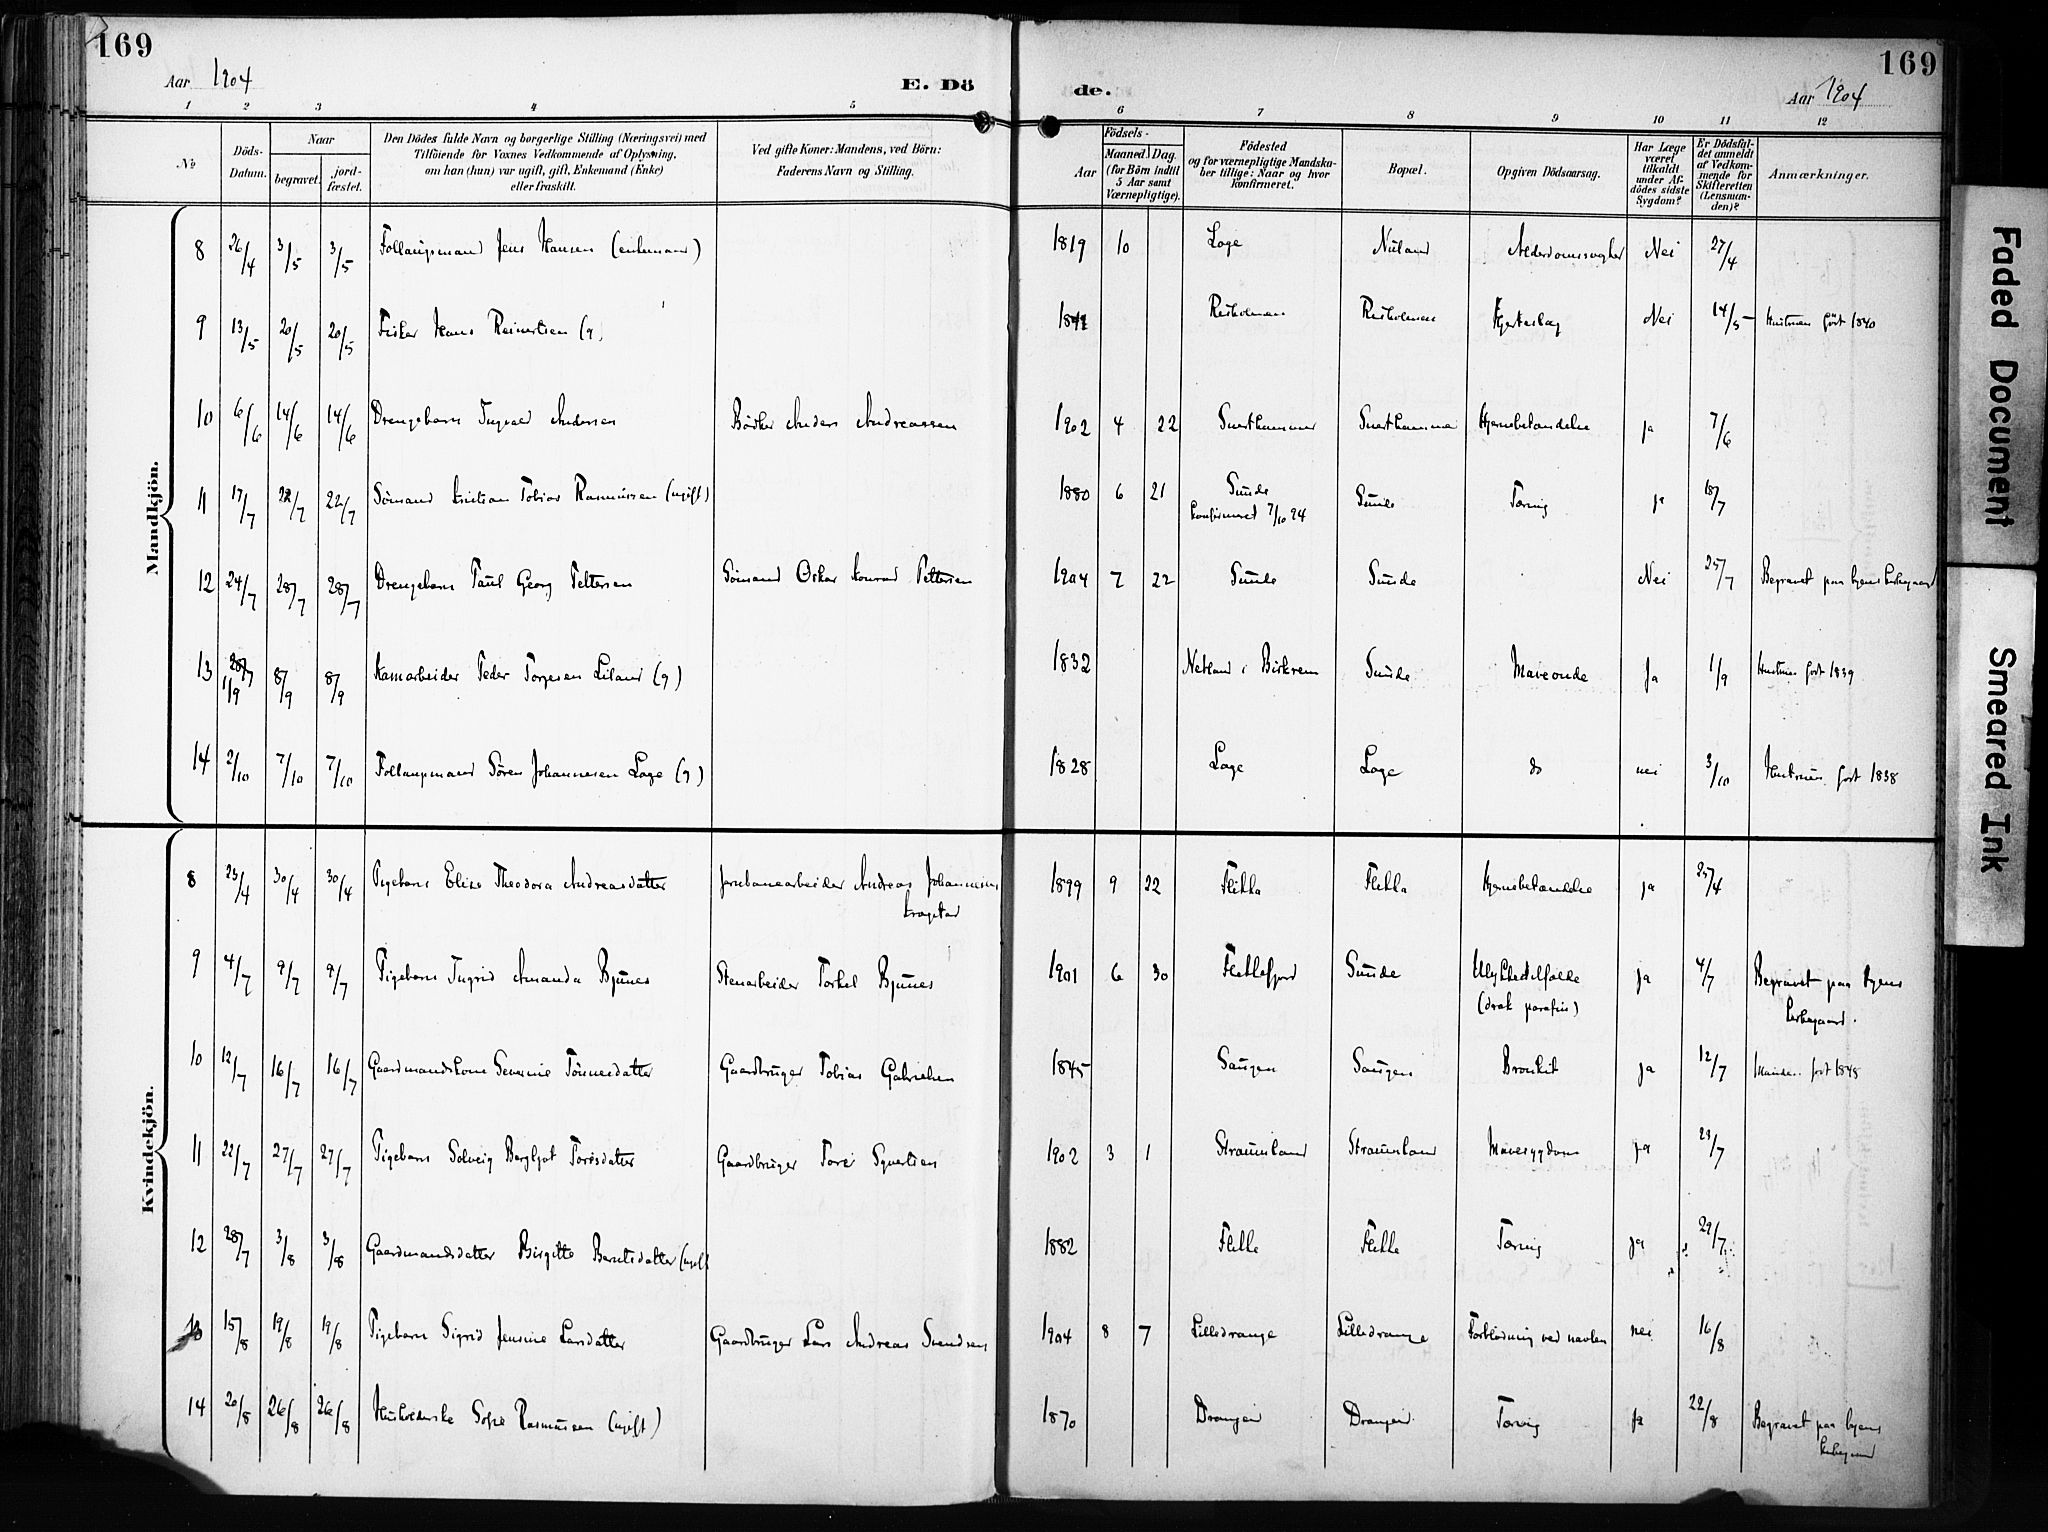 169
169
Aar 1904
E. Dö
de.
Aar 1904
1 2 3 4 5 6 7 8 9 10 11 12
No
Döds-Datum.
Naar
begravet.
jord-fæstet.
Den Dödes fulde Navn og borgerlige Stilling (Næringsvei) med
Tilföiende for Voxnes Vedkommende af Oplysning,
om han (hun) var ugift, gift, Enkemand (Enke)
eller fraskilt.
Ved gifte Koner: Mandens, ved Börn:
Faderens Navn og Stilling.
Födsels-
Aar
Maaned. Dag.
(for Börn indtil
5 Aar samt
Værnepligtige).
Födested
og for værnepligtige Mandska-
ber tillige: Naar og hvor
konfirmeret.
Bopæl.
Opgiven Dödsaarsag.
Har Læge
været
tilkaldt
under Af-
dödes sidste
Sygdom?
Er Dödsfal-
det anmeldt
af Vedkom-
mende for
Skifteretten
(Lensman-
den)?
Anmærkninger.
Mandkjön.
8 26/4 3/5 3/5 Jens Hansen 1819 10 Loge Alderdomssvaghed Nei 27/4
9 13/5 20/5 20/5 Fisker Hans Reinertsen (g. Rusholmen Rusholmen Nei 14/5 Hustruen født 1840
10 6/6 14/6 14/6 Drengebarn Ingvald Andersen Bødker Anders Andreassen 1902 4 22 Hjernebetændelse ja 7/6
11 17/7 22/7 22/7 Sømand Kristian Tobias Rasmussen (ugift) 1880 6 21 Sunde Sunde Tæring ja 18/7
konfirmeret 7/10 24
12 24/7 28/7 28/7 Drengebarn Paul Georg Pettersen Sømand Oskar Konrad Pettersen 1904 7 22 Sunde Sunde Nei 25/7 Begravet paa byens kirkegaard
13 1/9 8/9 8/9 Peder Torgersen Liland (g) 1832 Netland i Birkrem Sunde Maveonde Ja 1/9 Hustruen født 1839
14 2/10 7/10 7/10 Søren Johannesen Loge (g) 1828 Loge Loge do nei 3/10 Hustruen født 1838
Kvindekjön.
8 23/4 30/4 30/4 Pigebarn Elise Theodora Andreasdatter Jernbanearbeider Andreas Johannesen 1899 9 22 Flikka Flikka Hjernebetændelse ja 25/4
9 4/7 9/7 9/7 Pigebarn Ingrid Amanda Bjunes Stenarbeider Torkel Bjunes 1901 6 30 Flekkefjord Sunde Ulykkestilfælde ja 4/7 Begravet paa byens
(drak parafin) kirkegaard.
10 12/7 16/7 16/7 Gaardmandskone Severine Tönnesdatter Gaardbruger Tobias Gabrielsen 1845 Saugen Saugen Bronkit ja 12/7 Manden født 1848
11 22/7 27/7 27/7 Pigebarn Solveig Bergljot Toresdatter Gaardbruger Tore Syvertsen 1902 3 1 Straumland Straumland Mavesygdom ja 23/7
12 28/7 3/8 3/8 Gaardmandsdatter Birgitte Berntsdatter (ugift 1882 Flikka Flikka Tæring ja 29/7
13 15/8 19/8 19/8 Pigebarn Sigrid Jensine Larsdatter Gaardbruger Lars Andreas Svendsen 1904 8 7 Lilledrange Lilledrange Forblødning ved navlen nei 16/8
14 20/8 26/8 26/8 Husholderske Sofie Rasmussen (ugift) 1870 Drangeid Drangeid Tæring ja 22/8 Begravet paa byens
kirkegaard
Faded Document
Smeared Ink